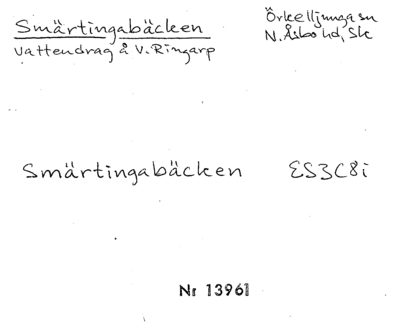 Smärtingabäcken
vattendrag å V. Ringarp
Örkelljunga sn
N. Åsbo hd, Sk
Smärtingabäcken ES3C8i
Nr 13961